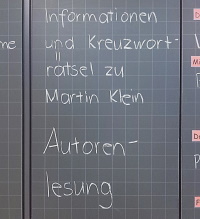 Informationen
und Kreuzwort-
rätsel zu
Martin Klein
Autoren-
lesung